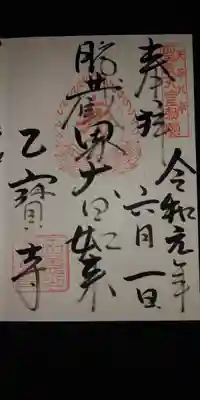 奉拝
令和元年
六月一日
胎蔵界大日如来
乙寳寺